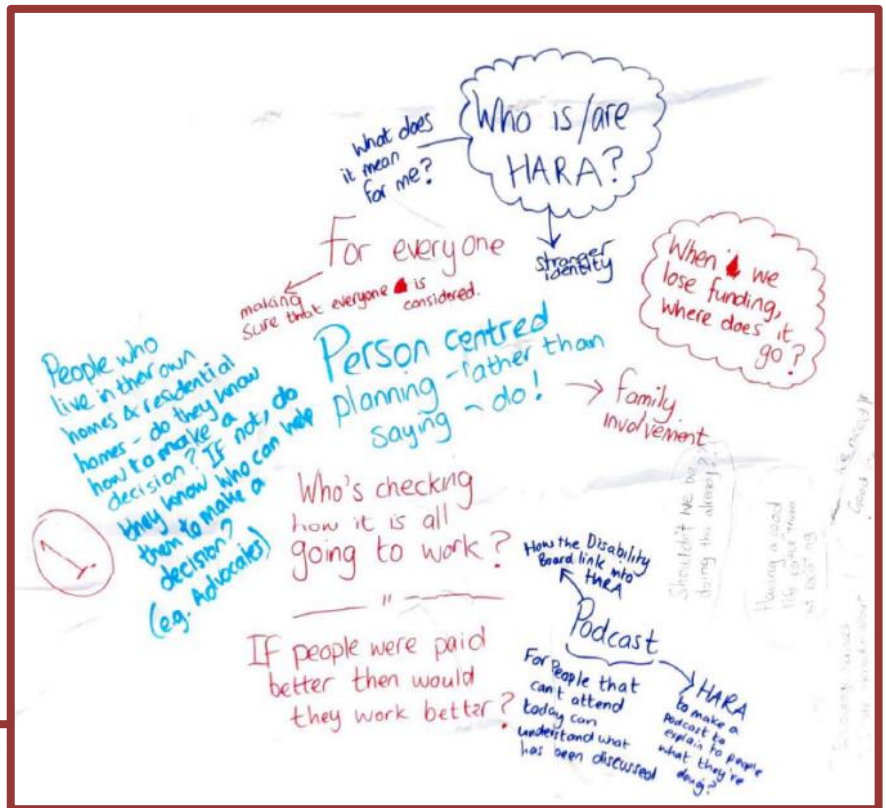 Who is/are
HARA?
What does
it mean
for me?
stronger
identity
For everyone
making
sure that everyone is
considered.
When we
lose funding,
where does it
go?
Person centred
planning - rather than
saying - do!
family
involvement
People who
live in their own
homes & residential
homes - do they know
how to make a
decision? If not, do
they know who can help
them to make a
decision?
(e.g. Advocates)
Who's checking
how it is all
going to work?
"
If people were paid
better then would
they work better?
How the Disability
Board link into
HARA
Podcast
For People that
can't attend
today can
understand what
has been discussed
HARA
to make a
Podcast to
explain to people
what they're
doing?
Shouldn't we be
doing this already?
Having a good
life rather than